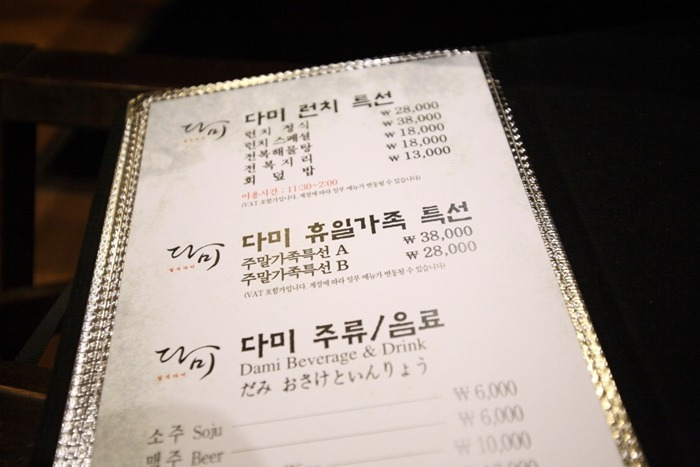 다미 다미 런치 특선
런치 정식 ₩ 28,000
런치 스페셜 ₩ 38,000
전복해물탕 ₩ 18,000
전복지리 ₩ 18,000
회덮밥 ₩ 13,000
이용시간 : 11:30~2:00
(VAT 포함가입니다. 계절에 따라 일부 메뉴가 변동될 수 있습니다)
다미 다미 휴일가족 특선
주말가족특선 A ₩ 38,000
주말가족특선 B ₩ 28,000
(VAT 포함가입니다. 계절에 따라 일부 메뉴가 변동될 수 있습니다)
다미 다미 주류/음료
Dami Beverage & Drink
だみ おさけといんりょう
소주 Soju ₩ 6,000
맥주 Beer ₩ 6,000
₩ 10,000